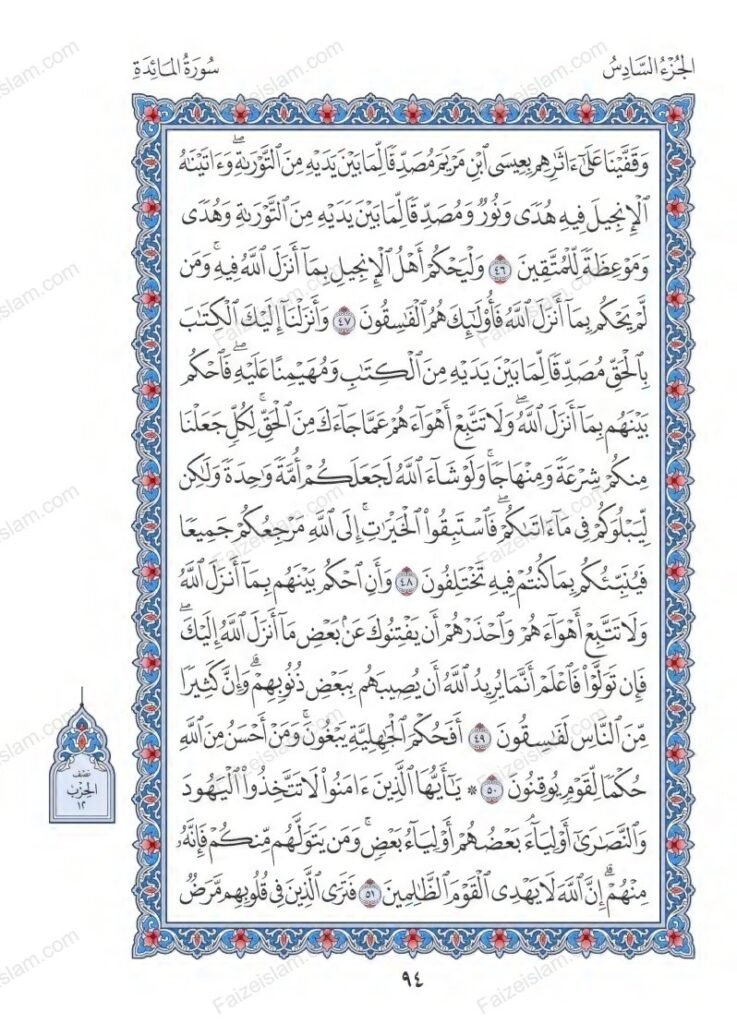 الجُزْءُ السَّادِسُ
سُورَةُ المَائِدَةِ
وَقَفَّيْنَا عَلَىٰٓ ءَاثَٰرِهِم بِعِيسَى ٱبْنِ مَرْيَمَ مُصَدِّقًا لِّمَا بَيْنَ يَدَيْهِ مِنَ ٱلتَّوْرَىٰةِۖ وَءَاتَيْنَٰهُ
ٱلْإِنجِيلَ فِيهِ هُدًى وَنُورٌ وَمُصَدِّقًا لِّمَا بَيْنَ يَدَيْهِ مِنَ ٱلتَّوْرَىٰةِ وَهُدًى
وَمَوْعِظَةً لِّلْمُتَّقِينَ ٤٦ وَلْيَحْكُمْ أَهْلُ ٱلْإِنجِيلِ بِمَآ أَنزَلَ ٱللَّهُ فِيهِۚ وَمَن
لَّمْ يَحْكُم بِمَآ أَنزَلَ ٱللَّهُ فَأُو۟لَٰٓئِكَ هُمُ ٱلْفَٰسِقُونَ ٤٧ وَأَنزَلْنَآ إِلَيْكَ ٱلْكِتَٰبَ
بِٱلْحَقِّ مُصَدِّقًا لِّمَا بَيْنَ يَدَيْهِ مِنَ ٱلْكِتَٰبِ وَمُهَيْمِنًا عَلَيْهِۖ فَٱحْكُم
بَيْنَهُم بِمَآ أَنزَلَ ٱللَّهُۖ وَلَا تَتَّبِعْ أَهْوَآءَهُمْ عَمَّا جَآءَكَ مِنَ ٱلْحَقِّۚ لِكُلٍّ جَعَلْنَا
مِنكُمْ شِرْعَةً وَمِنْهَاجًاۚ وَلَوْ شَآءَ ٱللَّهُ لَجَعَلَكُمْ أُمَّةً وَٰحِدَةً وَلَٰكِن
لِّيَبْلُوَكُمْ فِى مَآ ءَاتَىٰكُمْۖ فَٱسْتَبِقُوا۟ ٱلْخَيْرَٰتِۚ إِلَى ٱللَّهِ مَرْجِعُكُمْ جَمِيعًا
فَيُنَبِّئُكُم بِمَا كُنتُمْ فِيهِ تَخْتَلِفُونَ ٤٨ وَأَنِ ٱحْكُم بَيْنَهُم بِمَآ أَنزَلَ ٱللَّهُ
وَلَا تَتَّبِعْ أَهْوَآءَهُمْ وَٱحْذَرْهُمْ أَن يَفْتِنُوكَ عَنۢ بَعْضِ مَآ أَنزَلَ ٱللَّهُ إِلَيْكَۖ
فَإِن تَوَلَّوْا۟ فَٱعْلَمْ أَنَّمَا يُرِيدُ ٱللَّهُ أَن يُصِيبَهُم بِبَعْضِ ذُنُوبِهِمْۗ وَإِنَّ كَثِيرًا
مِّنَ ٱلنَّاسِ لَفَٰسِقُونَ ٤٩ أَفَحُكْمَ ٱلْجَٰهِلِيَّةِ يَبْغُونَۚ وَمَنْ أَحْسَنُ مِنَ ٱللَّهِ
حُكْمًا لِّقَوْمٍ يُوقِنُونَ ٥٠ ۞ يَٰٓأَيُّهَا ٱلَّذِينَ ءَامَنُوا۟ لَا تَتَّخِذُوا۟ ٱلْيَهُودَ
وَٱلنَّصَٰرَىٰٓ أَوْلِيَآءَۘ بَعْضُهُمْ أَوْلِيَآءُ بَعْضٍۚ وَمَن يَتَوَلَّهُم مِّنكُمْ فَإِنَّهُۥ
مِنْهُمْۗ إِنَّ ٱللَّهَ لَا يَهْدِى ٱلْقَوْمَ ٱلظَّٰلِمِينَ ٥١ فَتَرَى ٱلَّذِينَ فِى قُلُوبِهِم مَّرَضٌ
نصف
الحزب
١٢
٩٤
Faizeislam.com